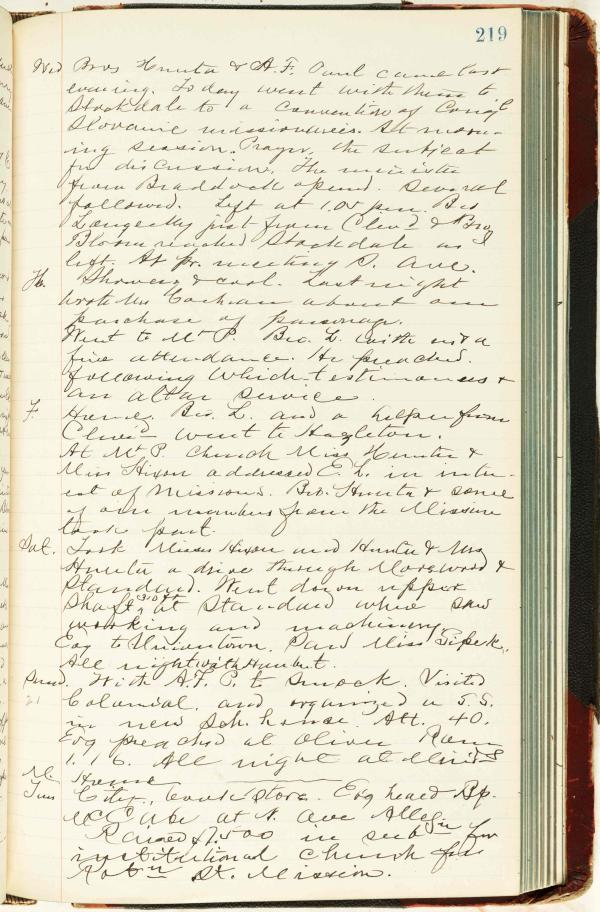 219
Wed Bros Hunter & A.F. Paul came last
evening. Today went with them to
Stockdale to a convention of Cong'l
Slovanic missionaries. At morn-
ing session. Prayer, the subject
for discussion. The minister
from Braddock opened. Several
followed. Left at 1.05 p.m. Bro
just from Clev'd & Bro
Bloom reached Stockdale as I
left. At pr. meeting P. Ave.
Th. Showery & cool. Last night
wrote Mrs Cochran about our
purchase of parsonage.
Went to Mt P. Bro. L. with us a
fine attendance. He preached.
following which testimonies &
an altar service.
F. Home. Bro. L. and a helper from
Clev'd went to Hazleton.
At Mt P. Church Miss Hunter &
Miss Hixon addressed E. L. in inter-
est of Missions. Bro. Hunter & some
of our members from the Mission
took part.
Sat. Took Misses Hixon and Hunter & Mrs
Hunter a drive through Morewood &
Standard. Went down upper
shaft, at Standard where saw
working and machinery.
Evg to Uniontown. Saw Miss
All night with Humbert.
Sund. With A.F.P. to Smock. Visited
21 Colonial, and organized a S.S.
in new Sch. house. Att. 40.
Evg preached at Oliver Rom
1.16. All night at
Mn Home
Tues City, book store. Evg heard Bp.
McCabe at N. Ave Alleg'y
Raised $1,500 in sub'n for
institutional church for
St. Mission.